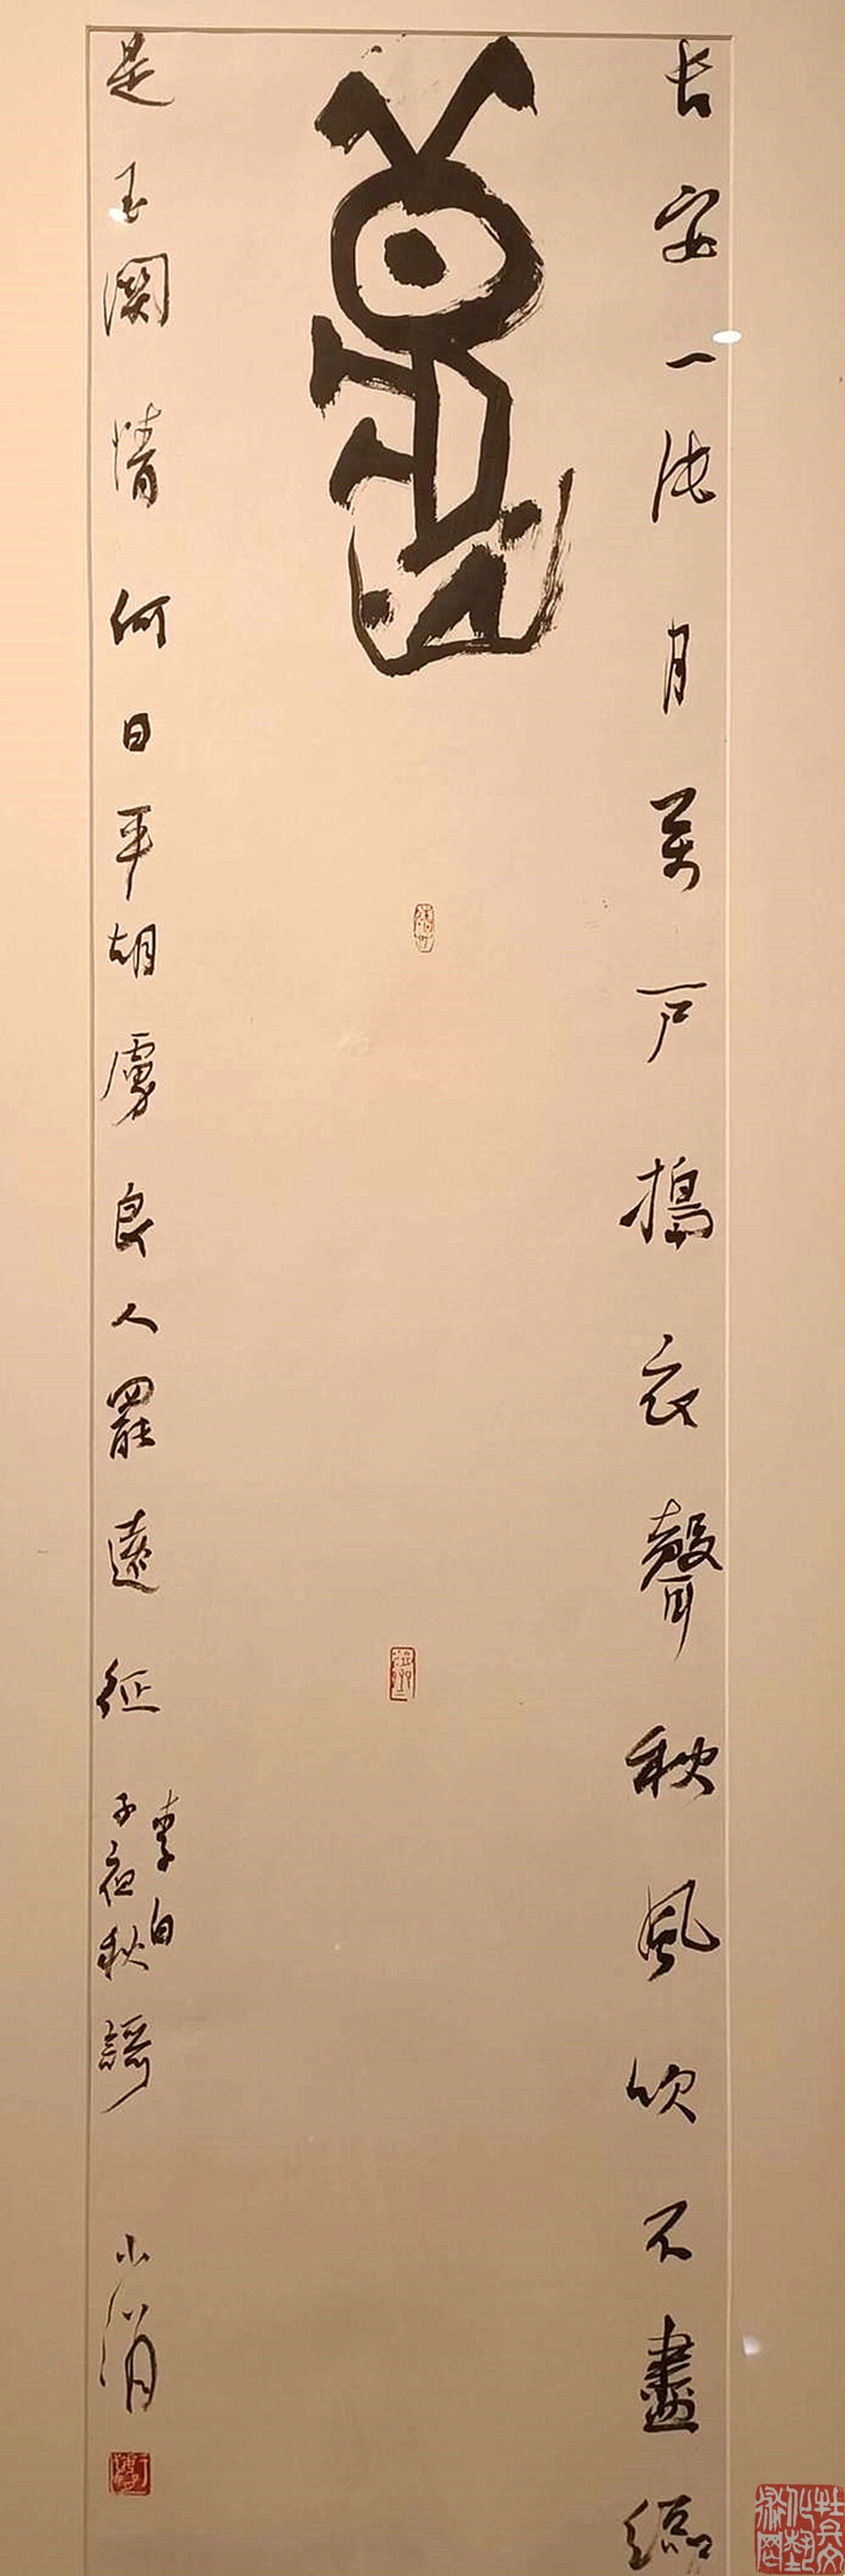 長安一片月萬戶搗衣聲秋風吹不盡總
是玉關情何日平胡虜良人罷遠征
李白
子夜秋謌
小涓